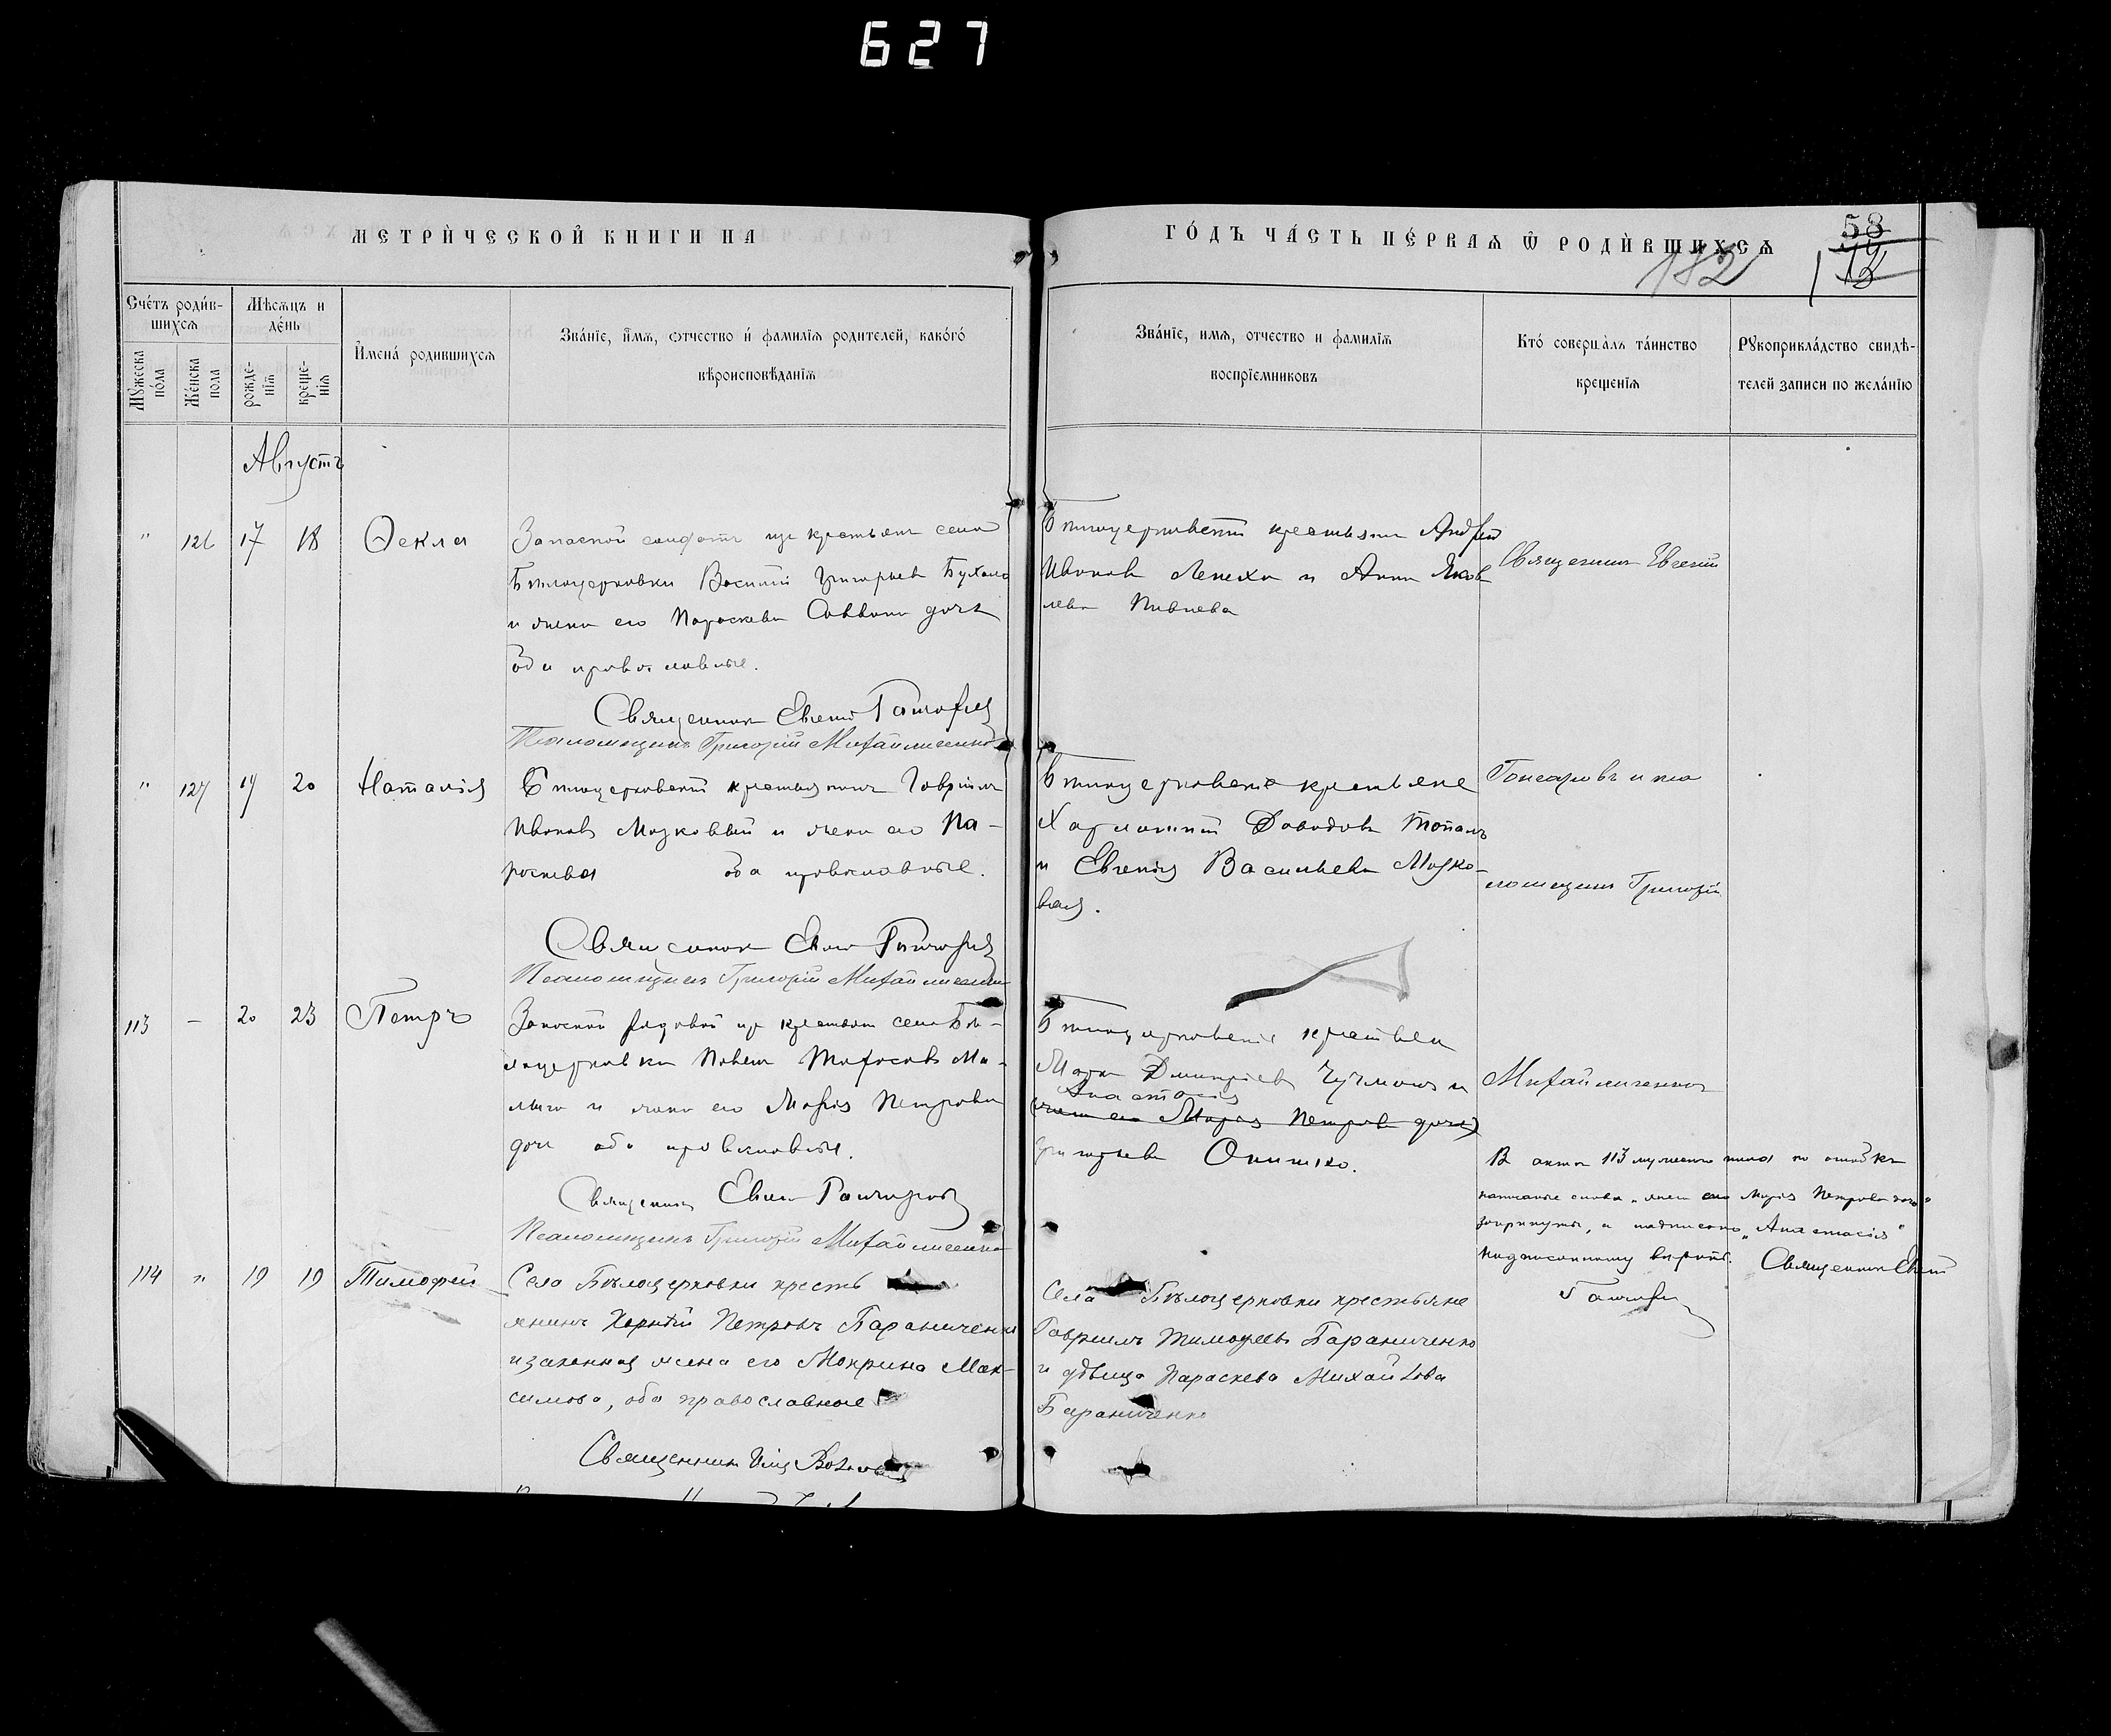 627
МЕТРИЧЕСКОЙ КНИГИ НА
ГОДЪ ЧАСТЬ ПЕРВАЯ Ѿ РОДИВШИХСЯ
58
182
Счетъ родив-
шихся
Мѣсяцъ и
день
Мужеска
пола
Женска
пола
рожде-
нія
креще-
нія
Имена родившихся
Званіе, имя, отчество и фамилія родителей, какого
вѣроисповѣданія
Званіе, имя, отчество и фамилія
воспріемниковъ
Кто совершалъ таинство
крещенія
Рукоприкладство свидѣ-
телей записи по желанію
Августъ
" 126 17 18 Ѳекла
Запасной солдатъ изъ крестьян села
Бѣлоцерковки Василій Григорьев
и жена его Параскева Саввина дочь
оба православные.
Священник Евгеній
Псаломщикъ Григорій Михайличенко
Бѣлоцерковскій крестьянин Андрей
Иванов Лепеха и Анна Яков
лева
Священник Евгеній
" 127 19 20 Наталія
Бѣлоцерковскій крестьянинъ Гавріилъ
Иванов Мозковый и жена его Па-
раскева оба православные.
Священник
Псаломщикъ Григорій Михайличенко
Бѣлоцерковскіе крестьяне
Харлампій Давидовъ
и Евгенія Васильева Мозко-
вая.
Гончаровъ и пса
ломщикъ Григорій
113 – 20 23 Петръ
Запасной рядовой из крестьян села Бѣ-
лоцерковки Павел Тарасов Ма-
и жена его Марія Петрова
дочь оба православные.
Священникъ
Псаломщикъ Григорій Михайличенко
Бѣлоцерковскіе крестьяне
Марк Дмитріев и
Анастасія
жена его Марія Петрова дочь
Григорьева Онишко.
Михайличенко
В актѣ 113 мужеского пола по ошибкѣ
написанные слова "жена его Марія Петрова дочь"
зачеркнуты, а надписано "Анастасія"
надписанному вѣрить. Священник
114 " 19 19 Тимофей
Села Бѣлоцерковки кресть
янинъ Петровъ Бараниченко
и законная жена его Мокрина Мак-
симова, оба православные
Священник
Села Бѣлоцерковки крестьяне
Гавріилъ Тимофеевъ Бараниченко
и дѣвица Параскева Михайлова
Бараниченко